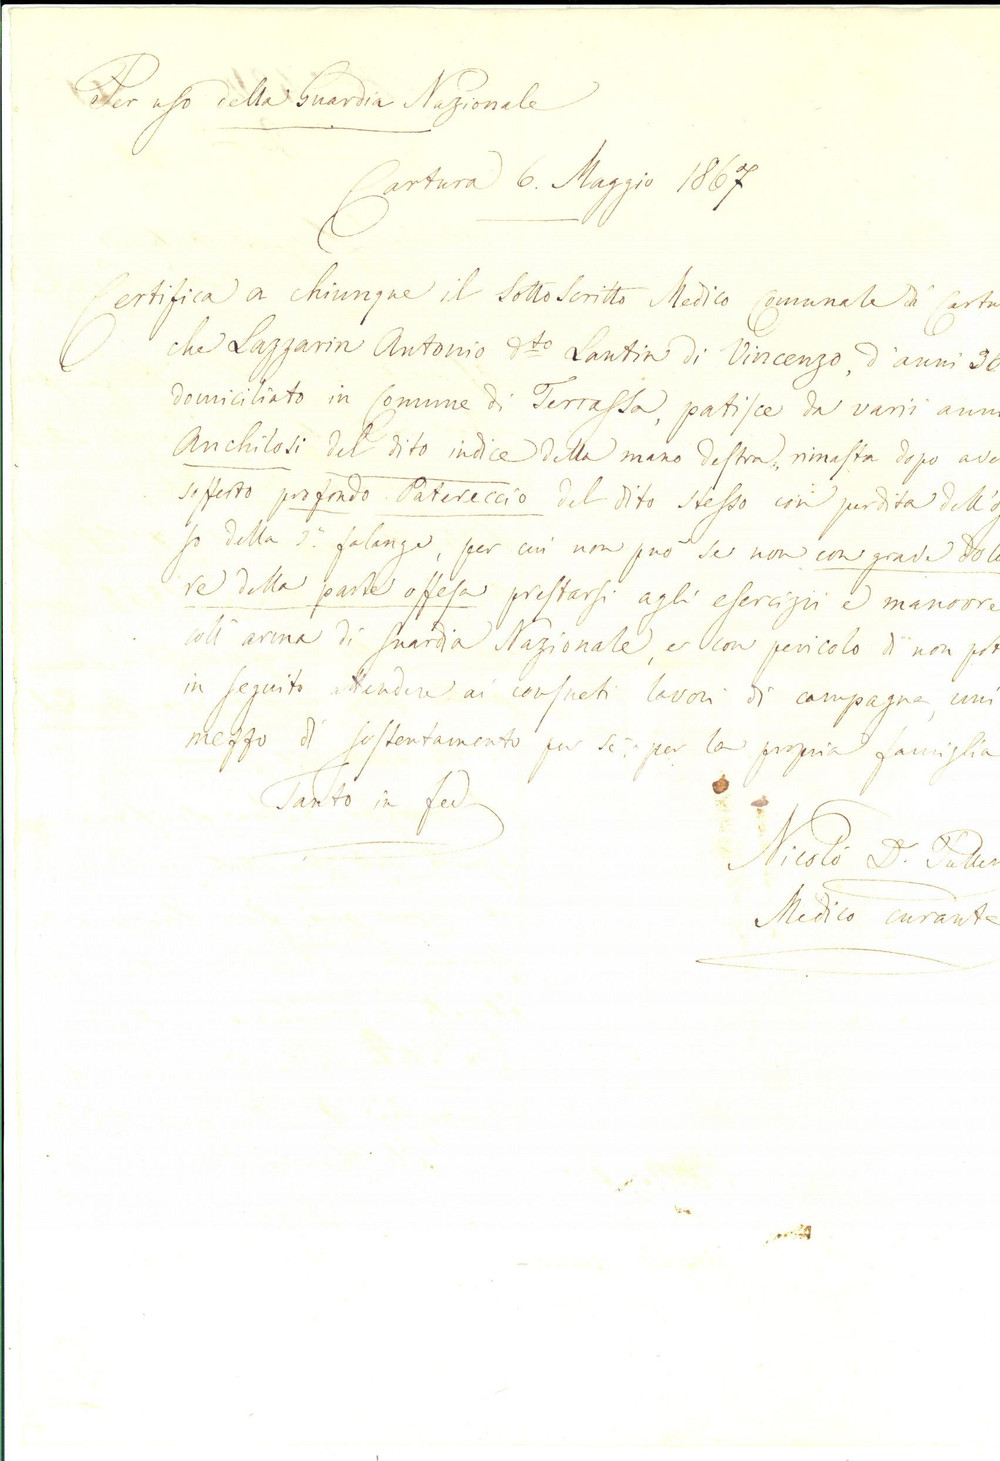 Per uso della Guardia Nazionale
Cartura 6. Maggio 1867
Certifica a chiunque il sottoscritto Medico Comunale di Cartu
che Lazzarin Antonio dto Lantin di Vincenzo, d'anni 30
domiciliato in Comune di Terrassa, patisce da varii anni
Anchilosi del dito indice della mano destra, rimasta dopo ave
sofferto profondo Patereccio del dito stesso con perdita dell'os
so della 3.a falange, per cui non può se non con grave dolo
re della parte offesa prestarsi agli esercizii e manovre
coll'arma di Guardia Nazionale, e con pericolo di non pot
in seguito attendere ai consueti lavori di campagna, uni
mezzo di sostentamento per sè e per la propria famiglia
Tanto in fed
Nicolò Dr.
Medico curante